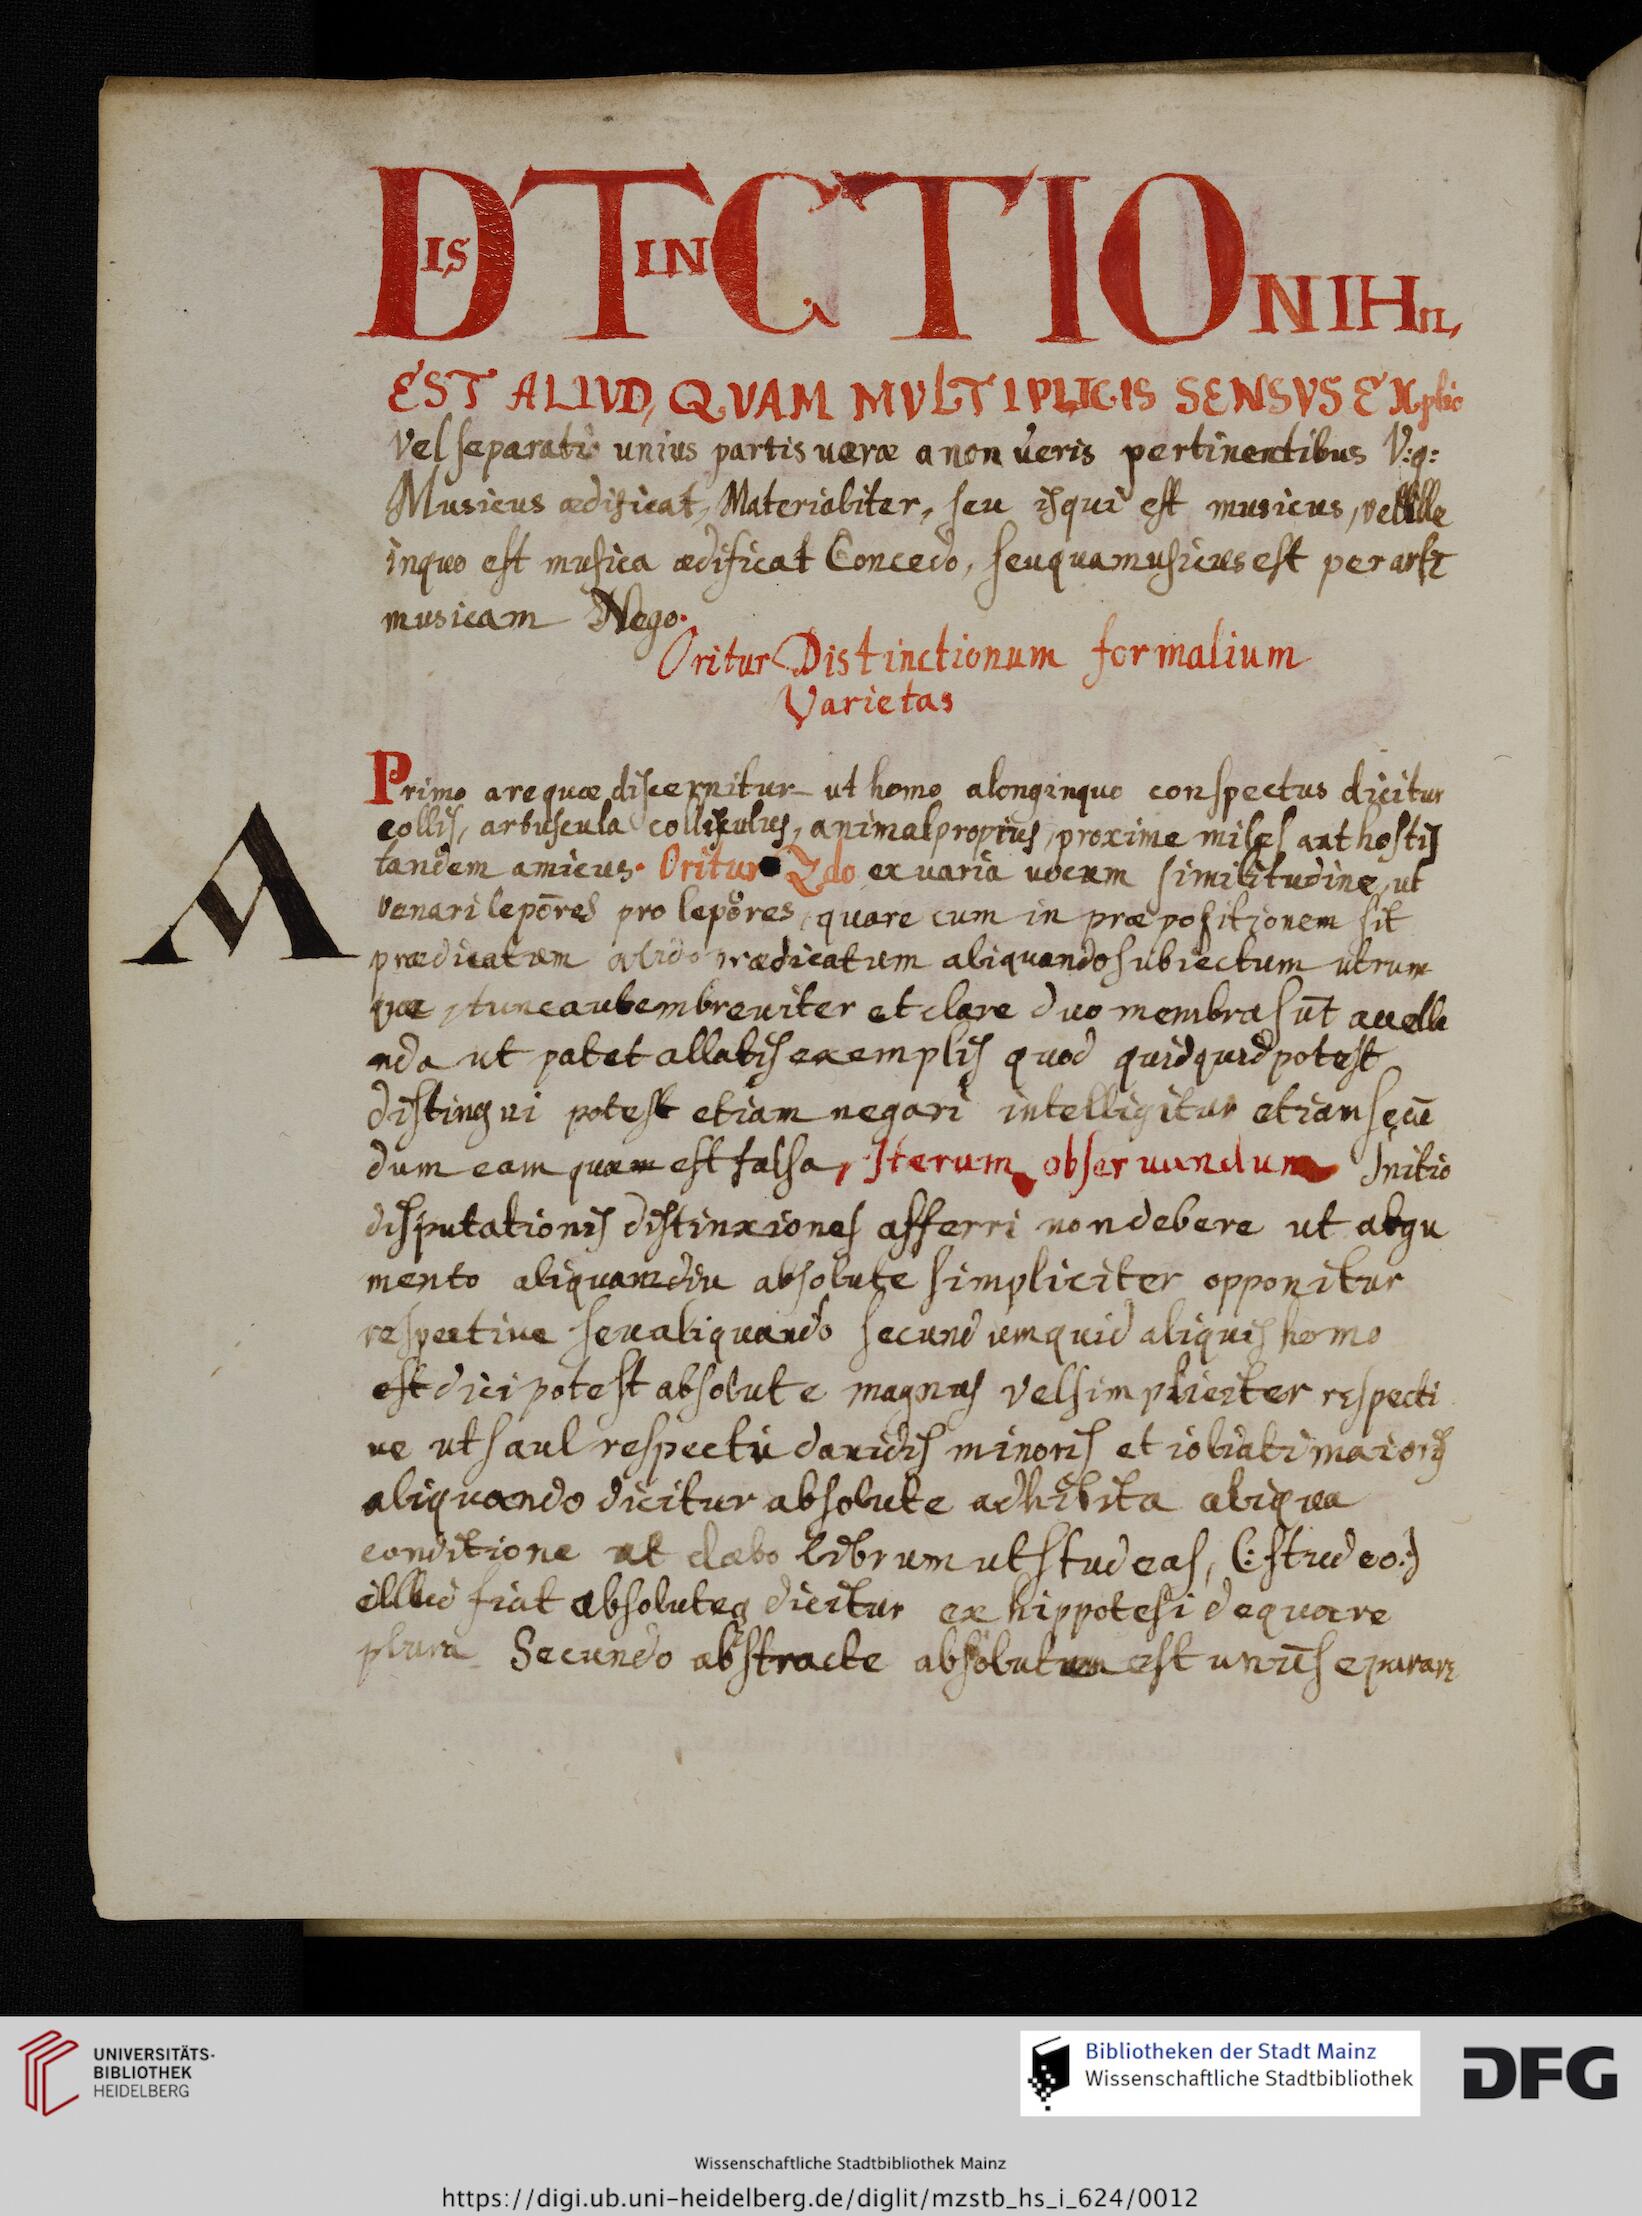 DISTINCTIO NIHIL,
EST ALIVD, QVAM MVLTIPLICIS SENSVS EXplic
Vel separatio unius partis veræ a non veris pertinentibus V:g:
Musicus ædificat, Materialiter, seu is qui est musicus, vel ille
in quo est musica ædificat Concedo, seu qua musicus est per artē
musicam Nego.
Oritur Distinctionum formalium
Varietas
Primo a re quæ discernitur ut homo a longinquo conspectus dicitur
collis, arbuscula animal propius, proxime miles aut hostis
tandem amicus. Oritur 2do ex varia vocum similitudine, ut
venari lepōres pro lepŏres, quare cum in præpositionem sit
prædicatum prædicatum aliquando subiectum utrum
quæ, tunc autem breviter et clare duo membra sūt avelle
nda ut patet allatis exemplis quod quidquid potest
distingui potest etiam negari intelligitur etiam secū
dum eam quam est falsa, Iterum observandum Initio
disputationis distinxiones afferri non debere ut argu
mento aliquamdiu absolute simpliciter opponitur
respective seu aliquando secundum quid aliquis homo
est dici potest absolute magnus vel simpliciter respecti
ve ut saul respectu davidis minoris et maioris
aliquando dicitur absolute adhibita aliqua
conditione ut dabo librum ut studeas, (: studeo:)
illud fiat absoluteq dicitur ex hippotesi de quare
plura Secundo abstracte absolutum est unū separarē
A
UNIVERSITÄTS-
BIBLIOTHEK
HEIDELBERG
Bibliotheken der Stadt Mainz
Wissenschaftliche Stadtbibliothek
DFG
Wissenschaftliche Stadtbibliothek Mainz
https://digi.ub.uni-heidelberg.de/diglit/mzstb_hs_i_624/0012